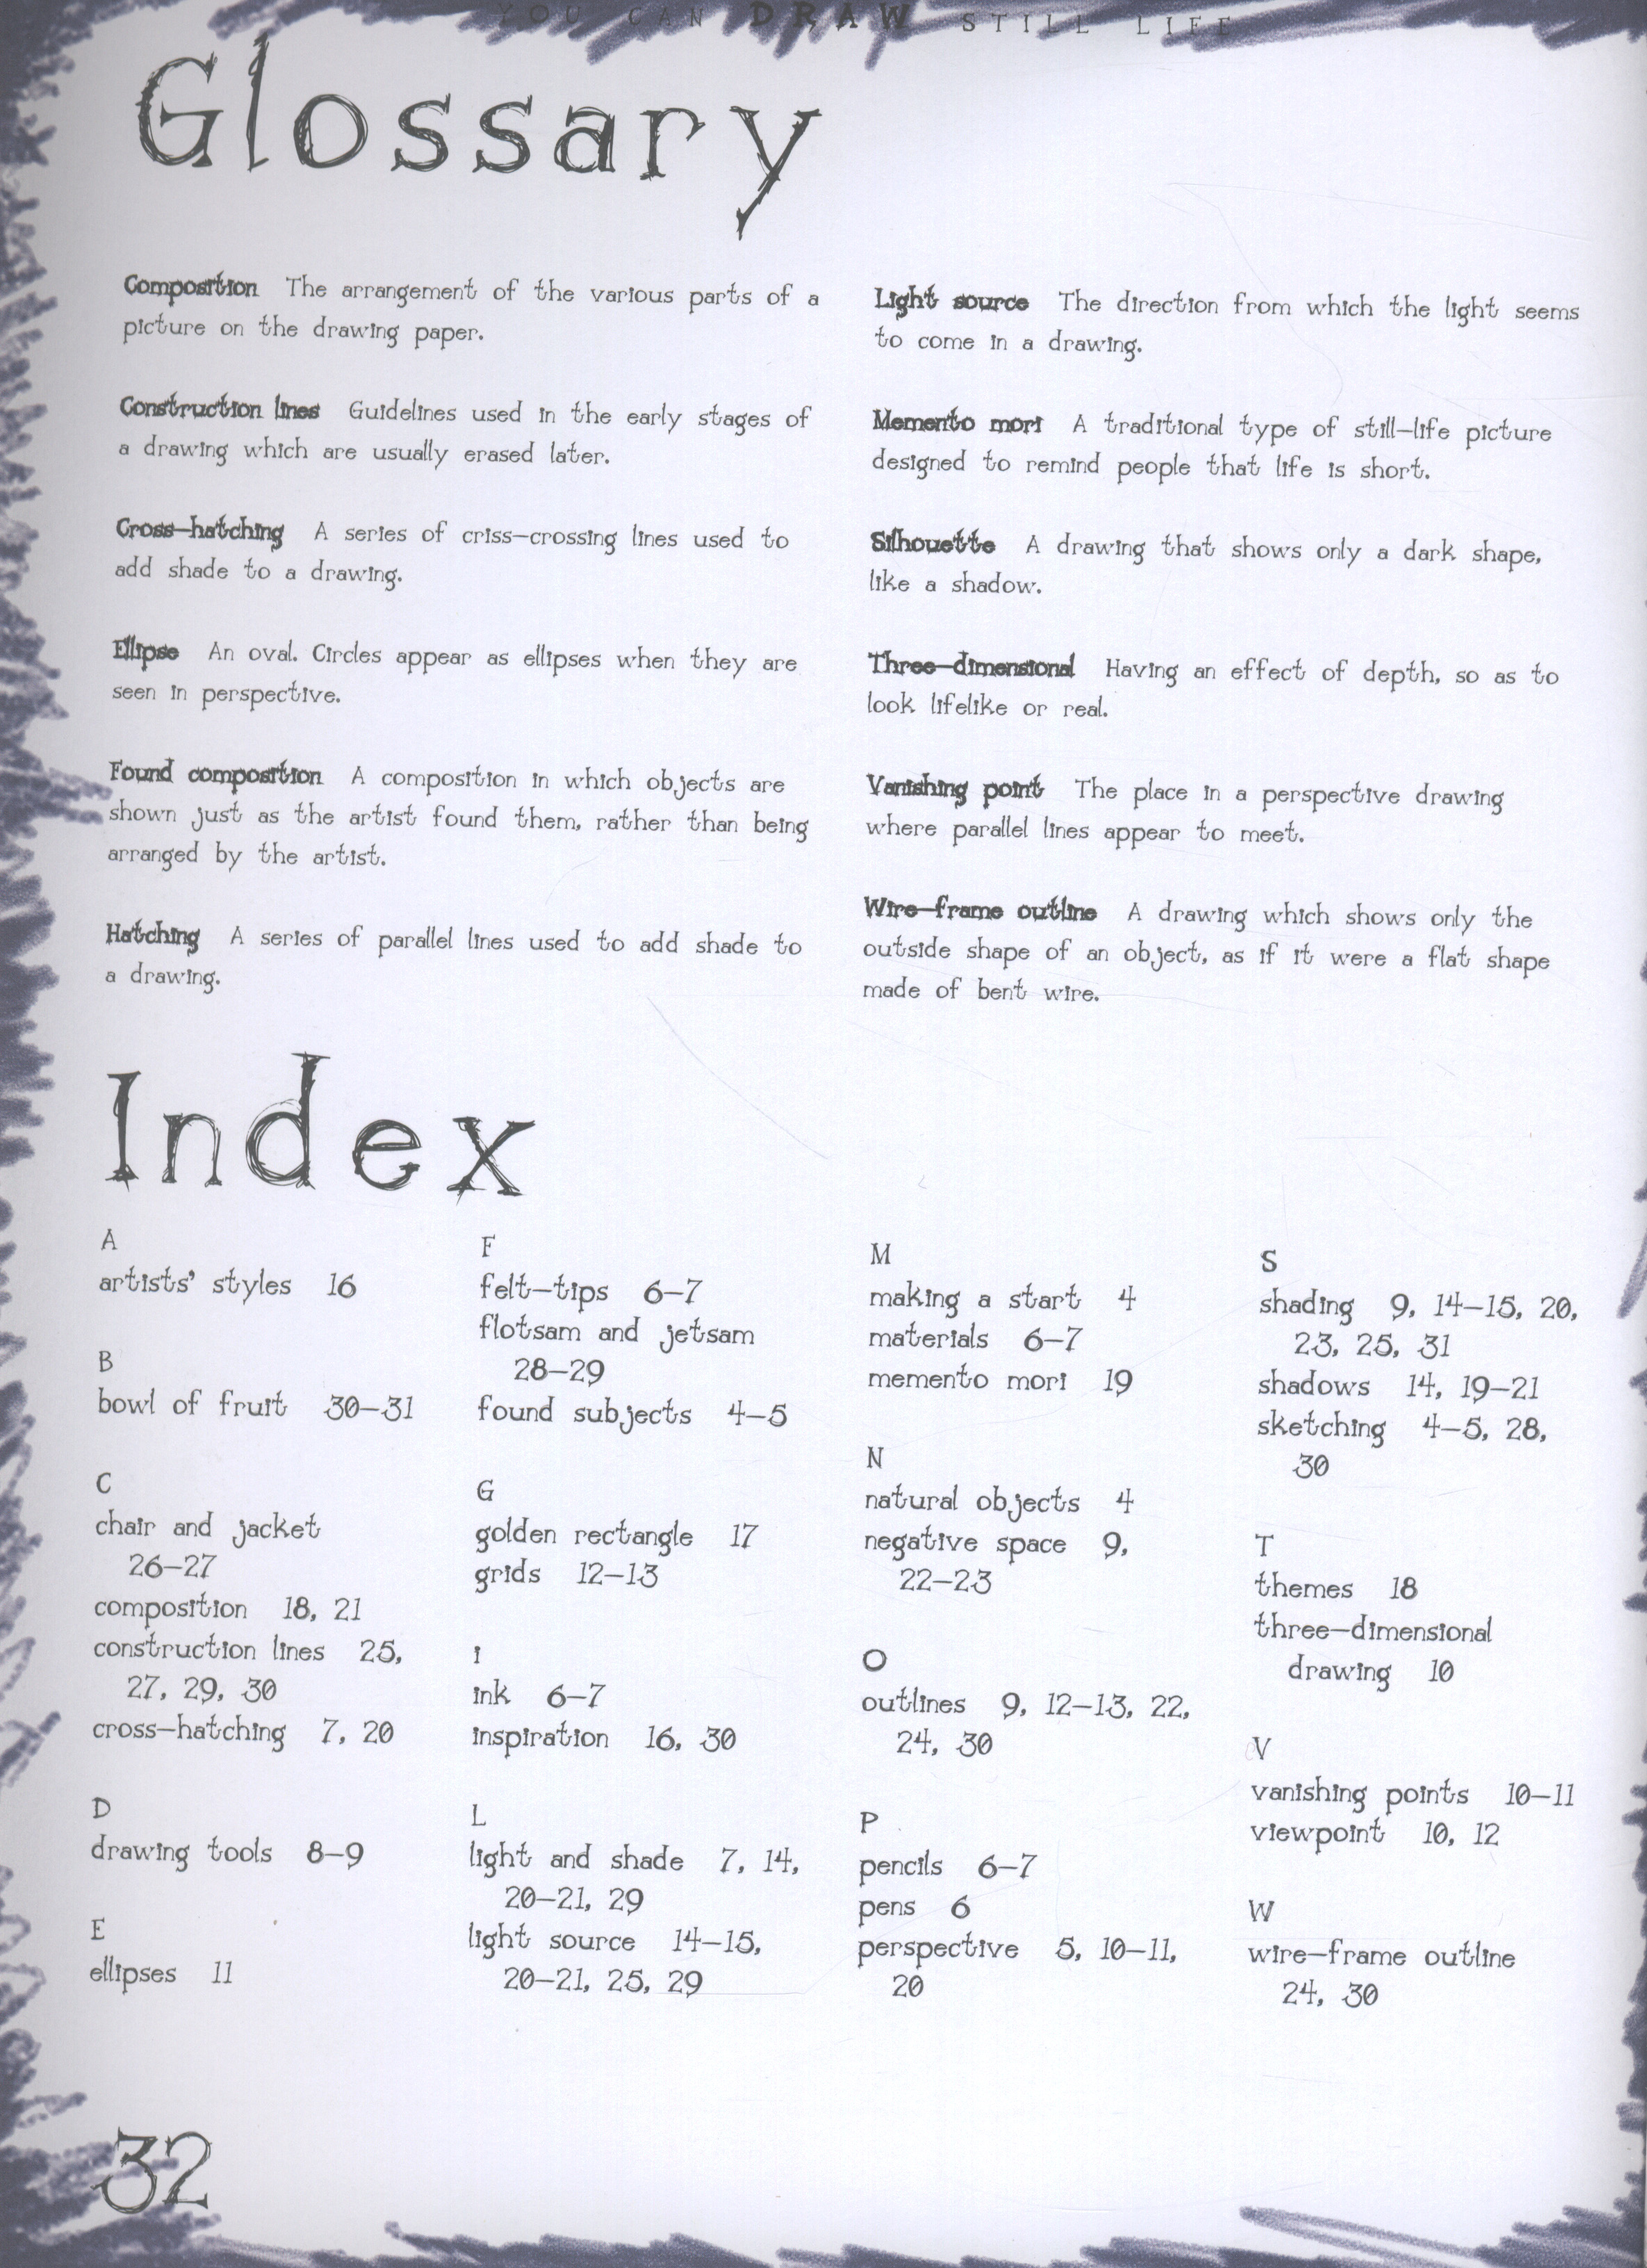 YOU CAN DRAW STILL LIFE
Glossary
Composition The arrangement of the various parts of a
picture on the drawing paper.
Construction lines Guidelines used in the early stages of
a drawing which are usually erased later.
Cross-hatching A series of criss-crossing lines used to
add shade to a drawing.
Ellipse An oval. Circles appear as ellipses when they are
seen in perspective.
Found composition A composition in which objects are
shown just as the artist found them, rather than being
arranged by the artist.
Hatching A series of parallel lines used to add shade to
a drawing.
Light source The direction from which the light seems
to come in a drawing.
Memento mori A traditional type of still-life picture
designed to remind people that life is short.
Silhouette A drawing that shows only a dark shape,
like a shadow.
Three-dimensional Having an effect of depth, so as to
look lifelike or real.
Vanishing point The place in a perspective drawing
where parallel lines appear to meet.
Wire-frame outline A drawing which shows only the
outside shape of an object, as if it were a flat shape
made of bent wire.
Index
A
artists' styles 16
B
bowl of fruit 30–31
C
chair and jacket
26–27
composition 18, 21
construction lines 25,
27, 29, 30
cross-hatching 7, 20
D
drawing tools 8–9
E
ellipses 11
F
felt-tips 6–7
flotsam and jetsam
28–29
found subjects 4–5
G
golden rectangle 17
grids 12–13
I
ink 6–7
inspiration 16, 30
L
light and shade 7, 14,
20–21, 29
light source 14–15,
20–21, 25, 29
M
making a start 4
materials 6–7
memento mori 19
N
natural objects 4
negative space 9,
22–23
O
outlines 9, 12–13, 22,
24, 30
P
pencils 6–7
pens 6
perspective 5, 10–11,
20
S
shading 9, 14–15, 20,
23, 25, 31
shadows 14, 19–21
sketching 4–5, 28,
30
T
themes 18
three-dimensional
drawing 10
V
vanishing points 10–11
viewpoint 10, 12
W
wire-frame outline
24, 30
32